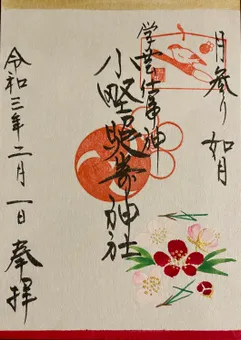 月参り 如月
学芸仕事神
小野照崎神社
令和三年二月一日 奉拝